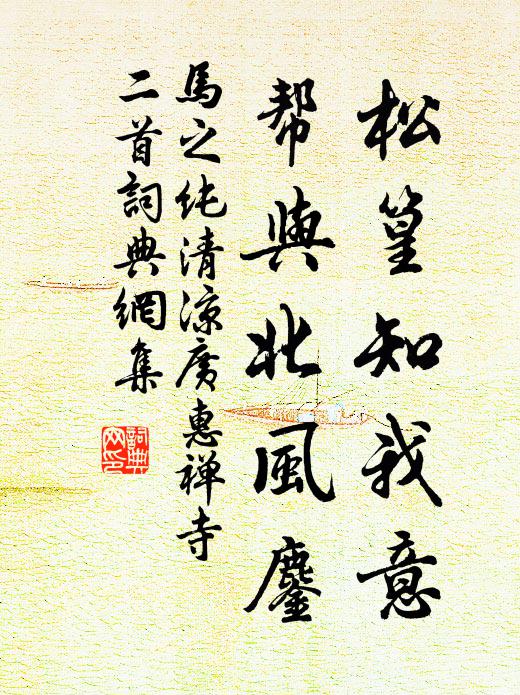 松篁知我意
幣與北風鏖
馬之纯清凉廣惠禅寺
二首詞典網集
詞典
网印